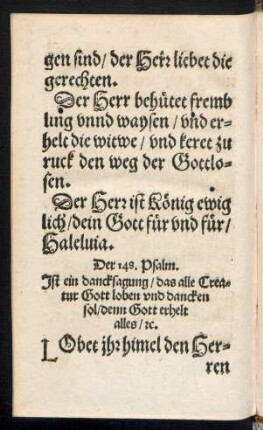 gen sind/ der Herr liebet die
gerechten.
Der Herr behütet fremb
ling vnnd waysen/ vnd er-
helt die witwe/ vnd keret zu
ruck den weg der Gottlo-
sen.
Der Herr ist König ewig
lich/ dein Gott für vnd für/
Haleluia.
Der 148. Psalm.
Ist ein dancksagung/ das alle Crea-
tur Gott loben vnd dancken
sol/ denn Gott erhelt
alles/ ꝛc.
LObet jhr himel den Her-
ren